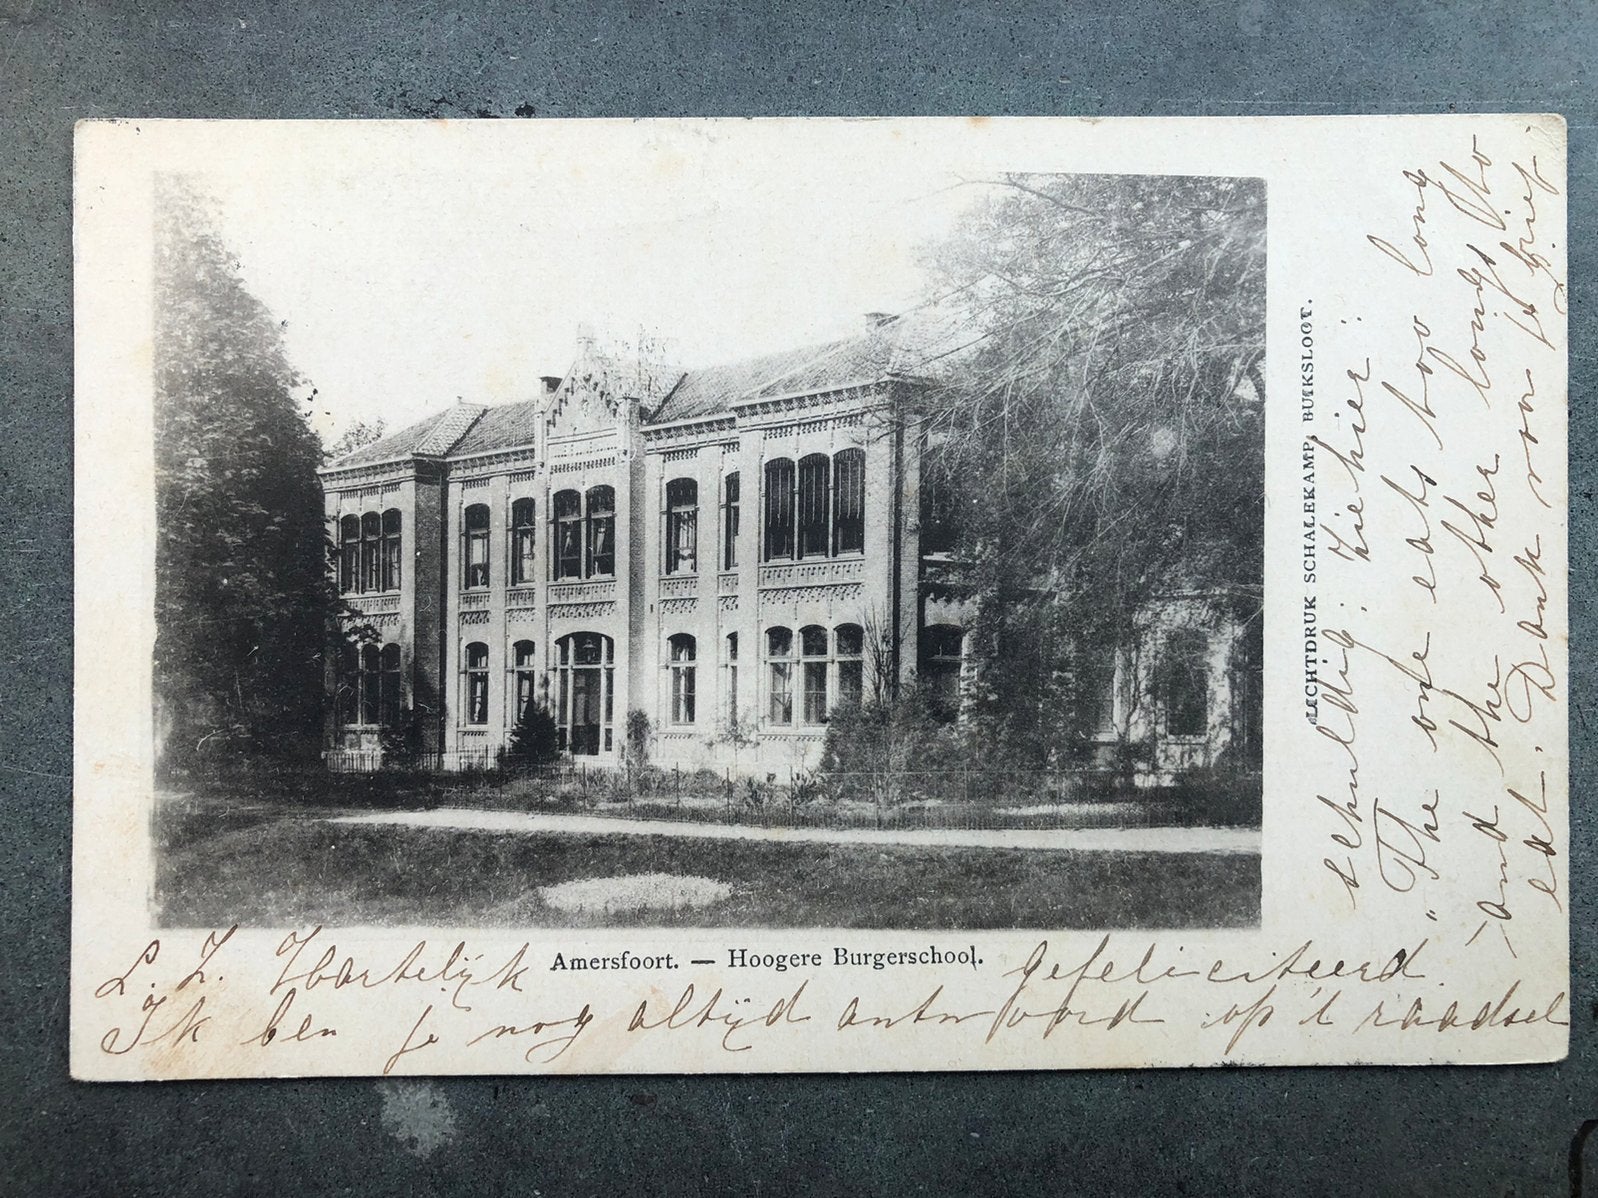 Amersfoort. — Hoogere Burgerschool.
LICHTDRUK SCHALEKAMP, BUIKSLOOT.
L. Z. Hartelijk gefeliciteerd.
Ik ben je nog altijd antwoord op 't raadsel
schuldig: ziehier:
"The one eats too long
and the other longs to
eat. Dank voor je brief.